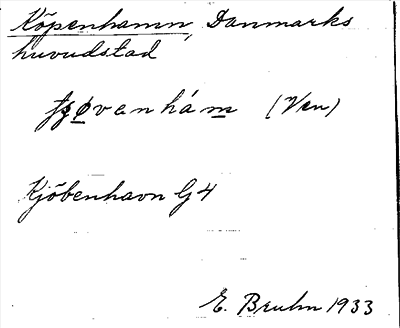 Köpenhamn, Danmarks
huvudstad
(Ven)
Kjöbenhavn G4
E. Bruhn 1933